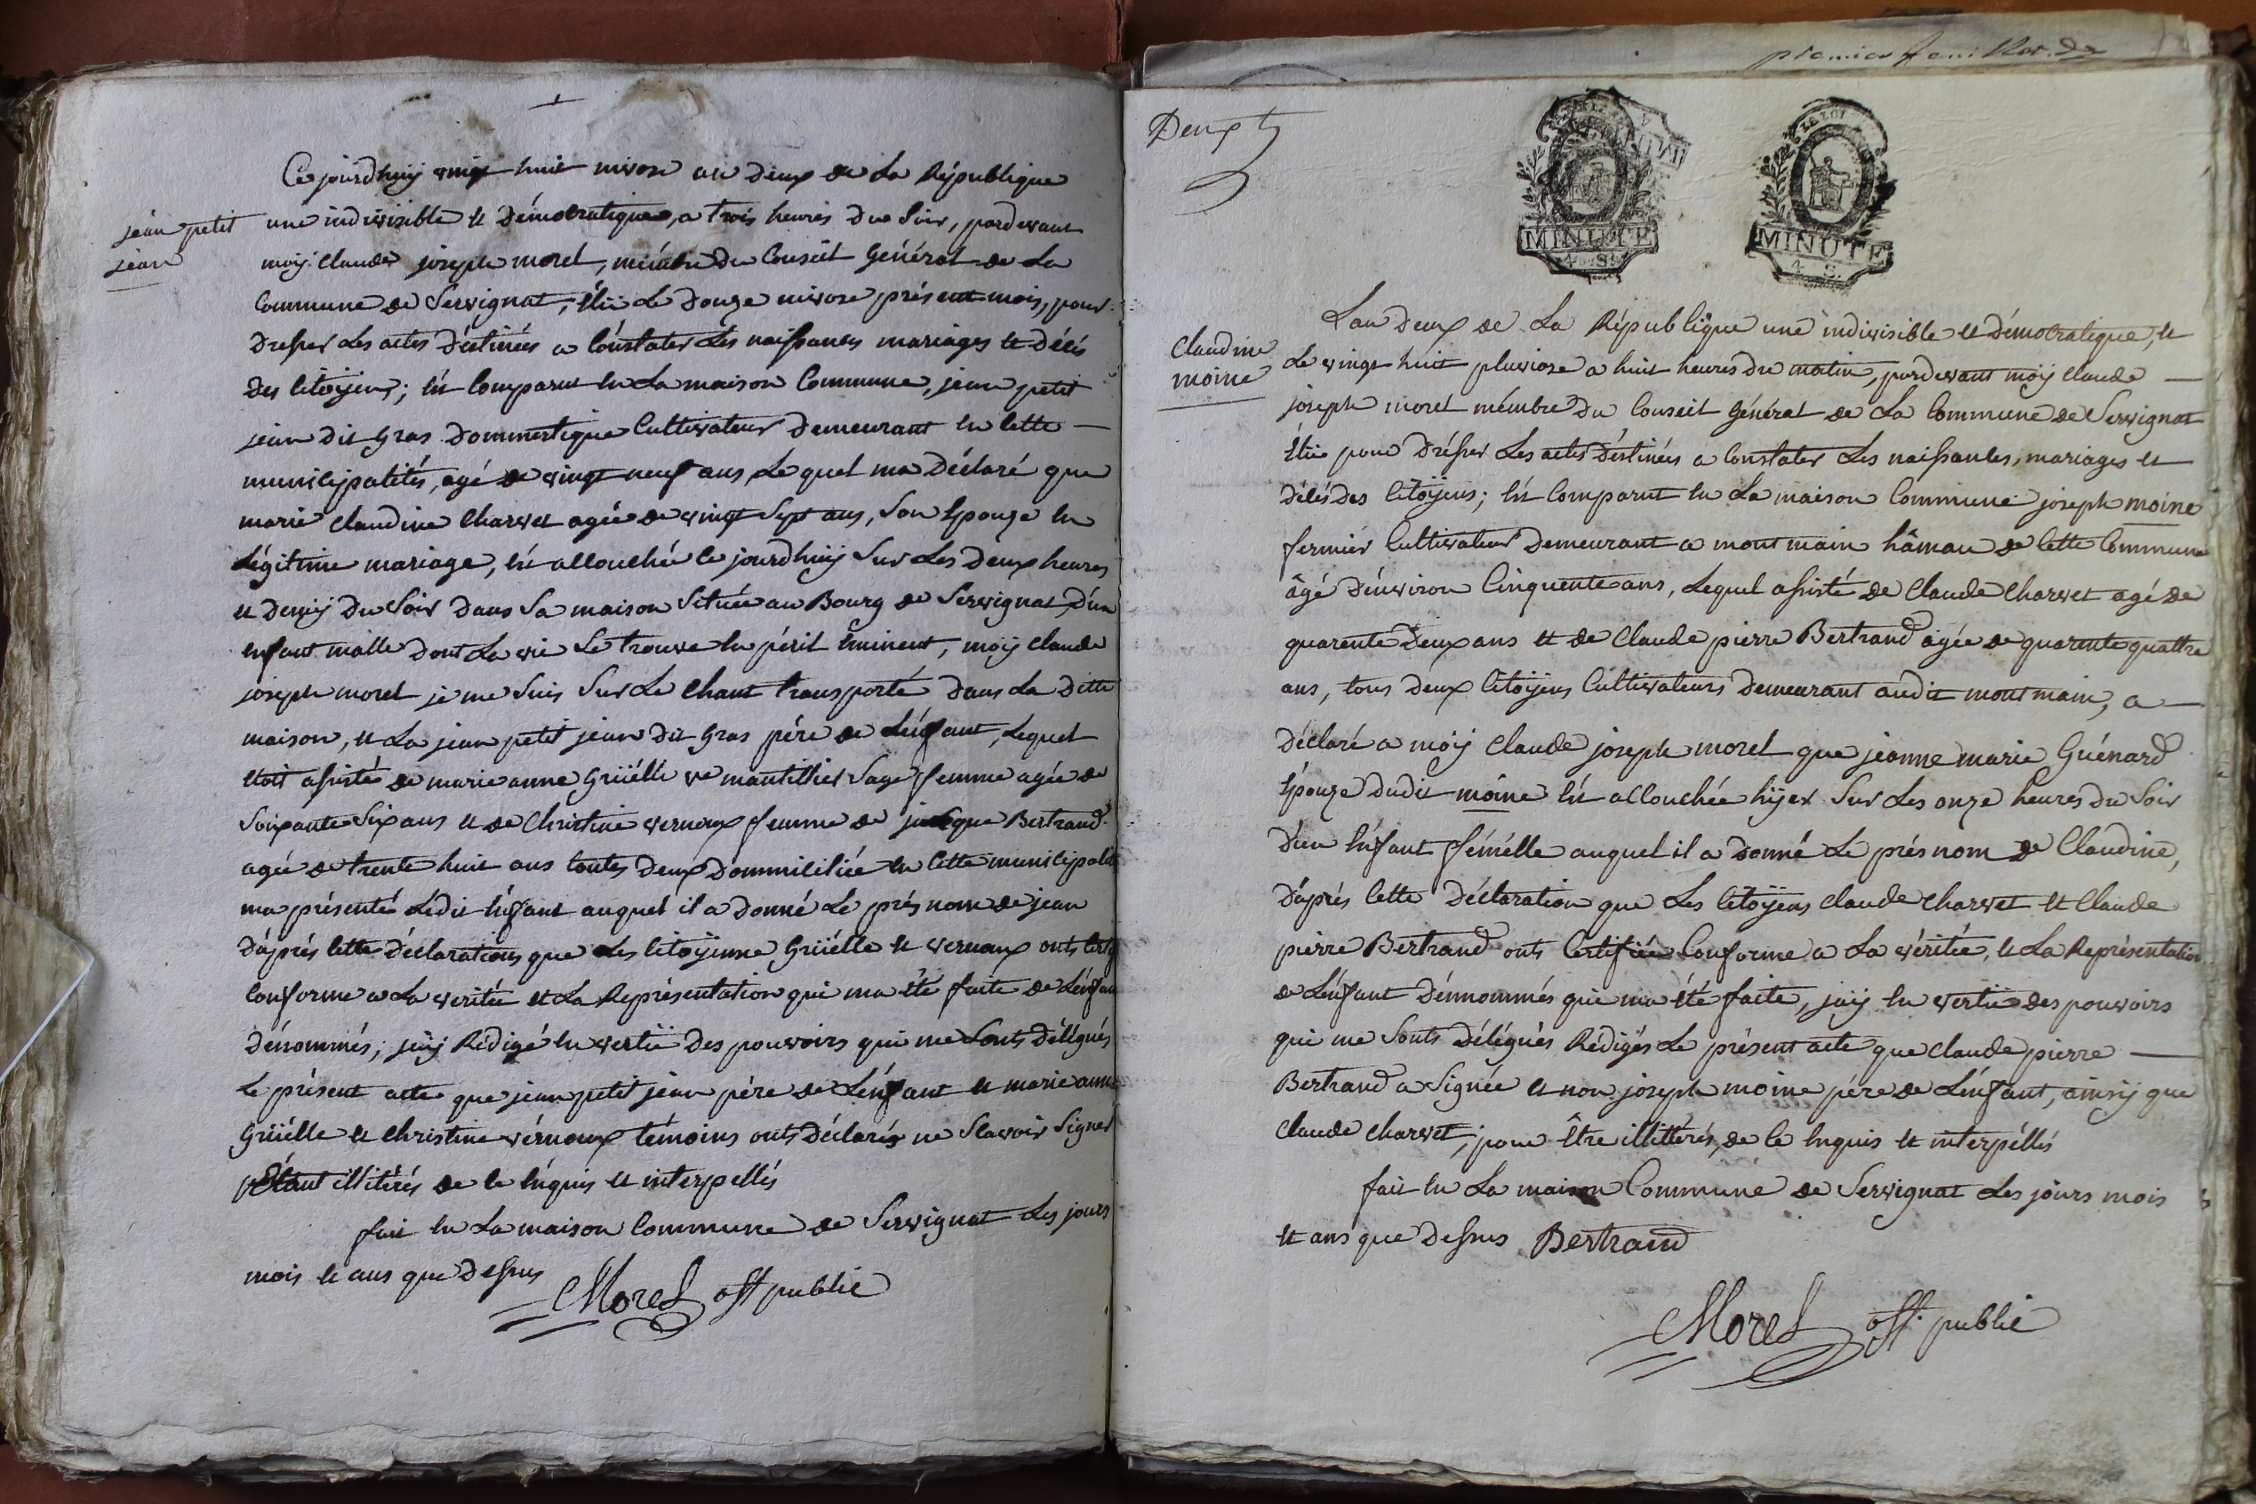 jean petit
jean
Ce jourdhuÿ vingt huit nivose an deux de La République
une indivisible et Démocratique, a trois heures du Soir, pardevant
moÿ claude joseph morel, mémbre du Conseil Général de La
Commune de Servignat, élü Le douze nivose présent mois, pour
Dresser Les actes déstinées a Constater Les naissances mariages et Décés
Des Citoÿens; Est Comparut En La maison Commune, jean petit
jean dit Gras Dommestique Cultivateur Demeurant En Cette
municipalités, agé de vingt neuf ans Le quel ma Déclaré que
marie claudine Charvet agée de vingt Sept ans, Son Epouze En
Légitime mariage, Est accouché Ce jourdhuÿ Sur Les Deux heures
et Demÿ Du Soir Dans Sa maison Située au Bourg de Servignat, D'un
enfant malle Dont La vie Se trouve En péril Eminent, moÿ claude
joseph morel je me Suis Sur Le Chant transporté Dans La Ditte
maison, et La jean petit jean Dit Gras pére de L'énfant, Lequel
etoit assisté de marie anne Grüélle ve mantillier Sage femme agée de
Soixante Six ans et de Christine vernoux femme de jacque Bertrand
agée de trente huit ans toutes deux Dommiciliée En Cette municipalit
ma présenté Ledit Enfant auquel il a Donné Le prés nom de jean
D'aprés Cette déclarations que Les Citoÿenne Grüélle et vernoux onts Certi
Conforme a La veritée et La Représentation qui ma Eté faite de L'énfan
Dénommés; jaÿ Rédigé En vertü Des pouvoirs qui me Sonts Délégués
Le présent acte que jean petit jean pére de L'énfant et marie anne
Grüélle et christine vérnoux témoins onts Déclarés ne Scavoir Signer
Étant illitérés de Ce Enquis et interpellés
fait En La maison Commune de Servignat Les jours
mois et ans que Dessus
Morel off public
premier feuillet de
Deux
MINUTE
4. S.
LA LOI
MINUTE
4. S.
Claudine
moine
L'an Deux de La République une indivisible et Démocratique, et
Le vingt huit pluviose a huit heures du matin, pardevant moÿ claude
joseph morel mémbre du Conseil Général de La Commune de Servignat
Elü pour Drésser Les actes Déstinées a Constater Les naissances, mariages et
Décés des Citoÿens; Est Comparut En La maison Commune joseph moine
fermier Cultivateur Demeurant a montmain hâmau de Cette Commune
âgé D'énviron Cinquente ans, Lequel assisté de Claude Charvet agé de
quarente Deux ans et de Claude pierre Bertrand agée de quarente quattre
ans, tous Deux Citoÿens Cultivateurs Demeurant audit montmain, a
Déclaré a moÿ claude joseph morel que jeanne marie Guénard
Epouze Dudit moine Est accouchée hÿer Sur Les onze heures du Soir
D'un Enfant fémélle auquel il a Donné Le prés nom de Claudine,
D'aprés Cette Déclaration que Les Citoÿens claude Charvet et Claude
pierre Bertrand onts Certifiée Conforme a La véritée, et La Représentation
de L'énfant Dénnommés qui ma été faite, jaÿ En vertü des pouvoirs
qui me Sonts Délégués Rédigés Le présent acte que claude pierre
Bertrand a Signée et non joseph moine pére de L'énfant, ainsÿ que
Claude Charvet, pour Être illittérés, de Ce Enquis et interpéllés
fait En La maison Commune de Servignat Les jours mois
et ans que Dessus Bertrand
Morel off. public